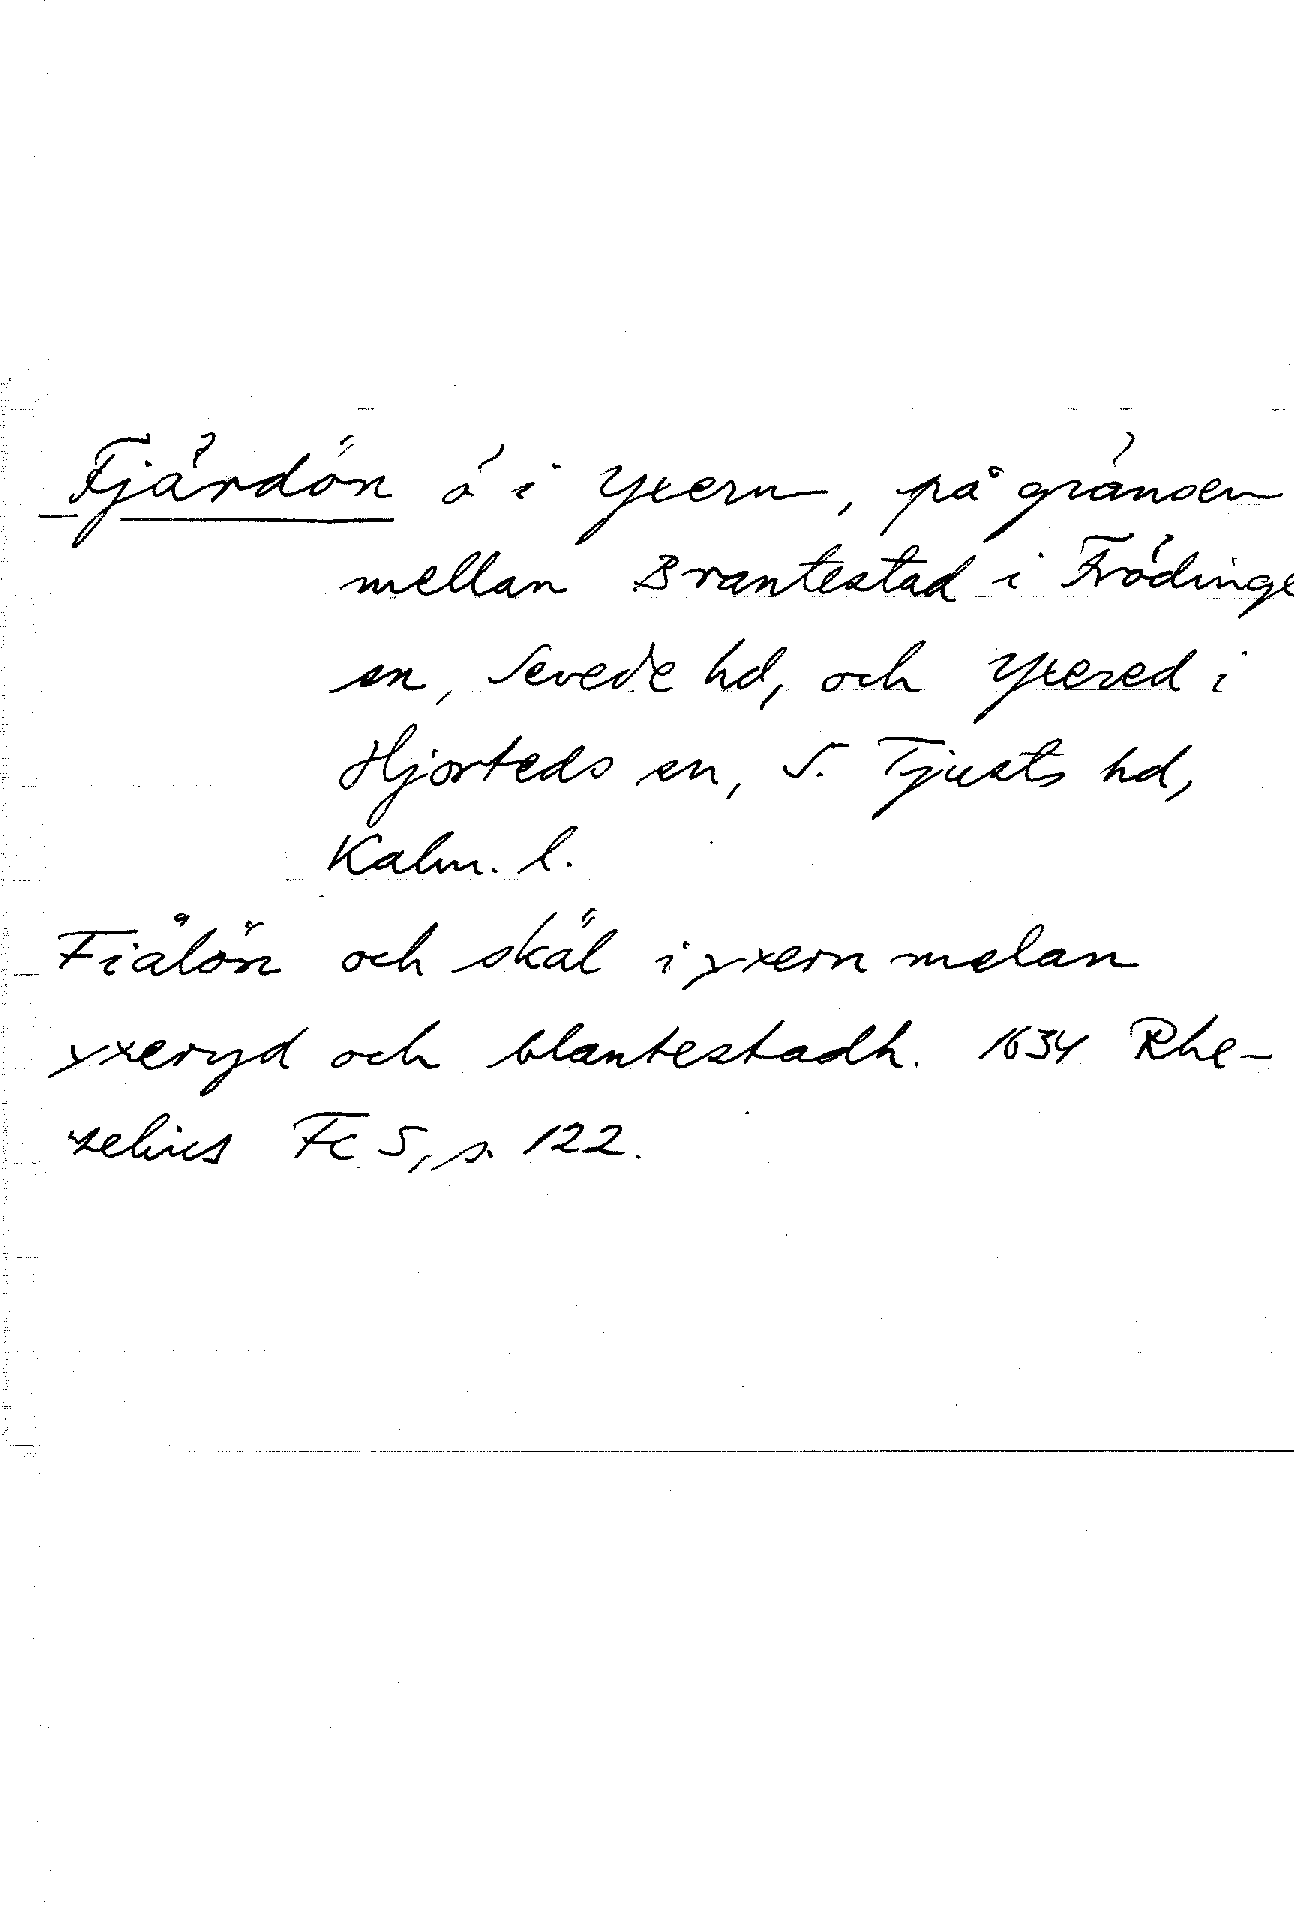 Fjärdön ö i Yxern, på gränsen
mellan Brantestad i Frödinge
sn, Sevede hd, och Yxered i
Hjorteds sn, S. Tjusts hd,
Kalm. l.
Fiälön och skäl i yxern melan
yxeryd och blantestadh. 1634 Rhe-
zelius Fc 5, s. 122.